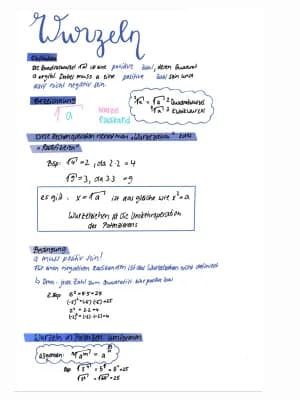 Wurzeln
Definition
Die Quadratwurzel √a ist eine positive Zahl, deren Quadrat
a ergibt. Dabei muss a eine positive Zahl sein und
darf nicht negativ sein.
Bezeichnung
√a
Wurzel
Radikand
²√a = √a → Quadratwurzel
³√a → Kubikwurzel
Diese Rechenoperation nennt man „Wurzelziehen“ oder
„Radizieren“
Bsp: √4 = 2, da 2·2 = 4
√9 = 3, da 3·3 = 9
es gilt: x = √a ist das gleiche wie x² = a
Wurzelziehen ist die Umkehroperation
des Potenzierens
Bedingung
a muss positiv sein!
Für einen negativen Radikanden ist das Wurzelziehen nicht definiert
↳ Denn: jede Zahl zum Quadrat ist
z.Bsp 5² = 5·5 = 25
(-5)² = (-5)·(-5) = 25
2² = 2·2 = 4
(-2)² = (-2)·(-2) = 4
Wurzeln in Potenzen umformen
Allgemein:
Bsp